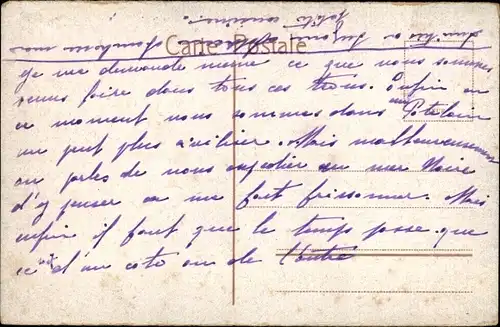 Carte Postale
Je me demande même ce que nous sommes
venus faire dans tous ces trous. Enfin en
ce moment nous sommes dans un Patelain
un peut plus civiliser. Mais malheureusement
on parles de nous expedier en mer Noire
d'y penser ca me fait frissonner. Mais
enfin il faut que le temps passe que
ce soit d'un coté ou de l'autre